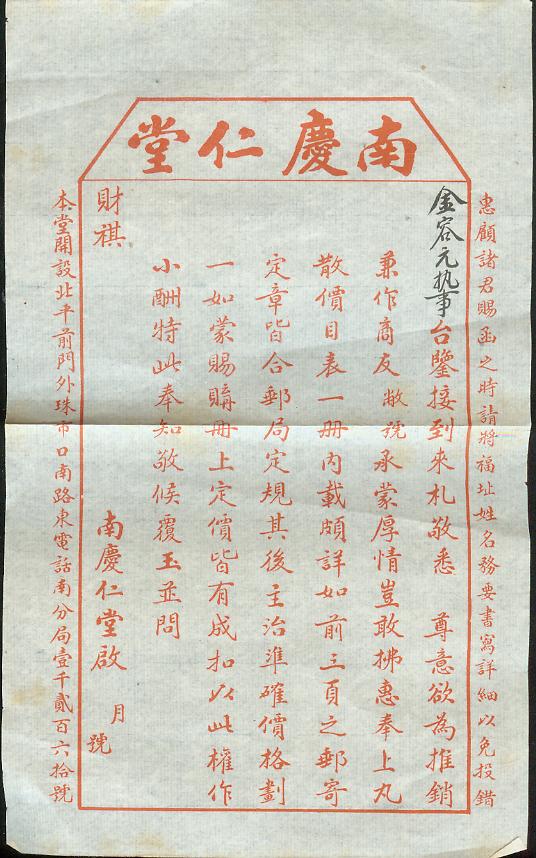 南慶仁堂
惠顧諸君賜函之時請將福址姓名務要書寫詳細以免投錯
金容元执事台鑒接到來札敬悉 尊意欲為推銷
兼作商友敝號承蒙厚情豈敢拂惠奉上丸
散價目表一冊內載頗詳如前三頁之郵寄
定章皆合郵局定規其後主治準確價格劃
一如蒙賜購冊上定價皆有成扣以此權作
小酬特此奉知敬候覆玉並問
財祺
南慶仁堂啟 月 號
本堂開設北平前門外珠市口南路東電話南分局壹千貳百六拾號